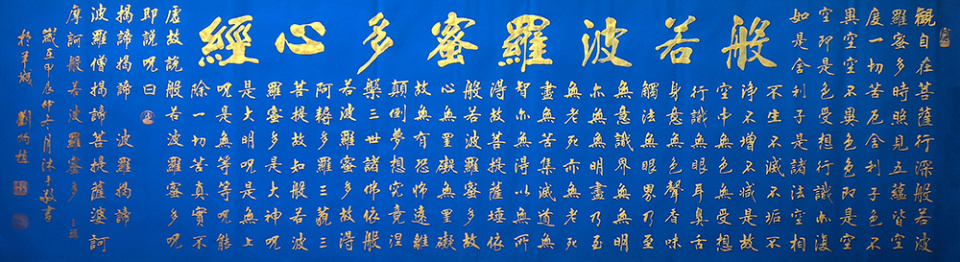 觀自在菩薩行深般若波
羅蜜多時照見五蘊皆空
度一切苦厄舍利子色不
異空空不異色色即是空
空即是色受想行識亦復
如是舍利子是諸法空相
般若波羅蜜多心經
不生不滅不垢不
淨不增不減是故
空中無色無受想
行識無眼耳鼻舌
身意無色聲香味
觸法無眼界乃至
無意識界無無明
亦無無明盡乃至
無老死亦無老死
盡無苦集滅道無
智亦無得以無所
得故菩提薩埵依
般若波羅蜜多故
心無罣礙無罣礙
故無有恐怖遠離
顛倒夢想究竟涅
槃三世諸佛依般
若波羅蜜多故得
阿耨多羅三藐三
菩提故知般若波
羅蜜多是大神呪
是大明呪是無上
呪是無等等呪能
除一切苦真實不
虛故說般若波羅蜜多呪
即說呪曰
揭諦揭諦 波羅揭諦
波羅僧揭諦菩提薩婆訶
摩訶般若波羅蜜多
歲在甲辰仲夏月沐手敬書
於羊城 劉